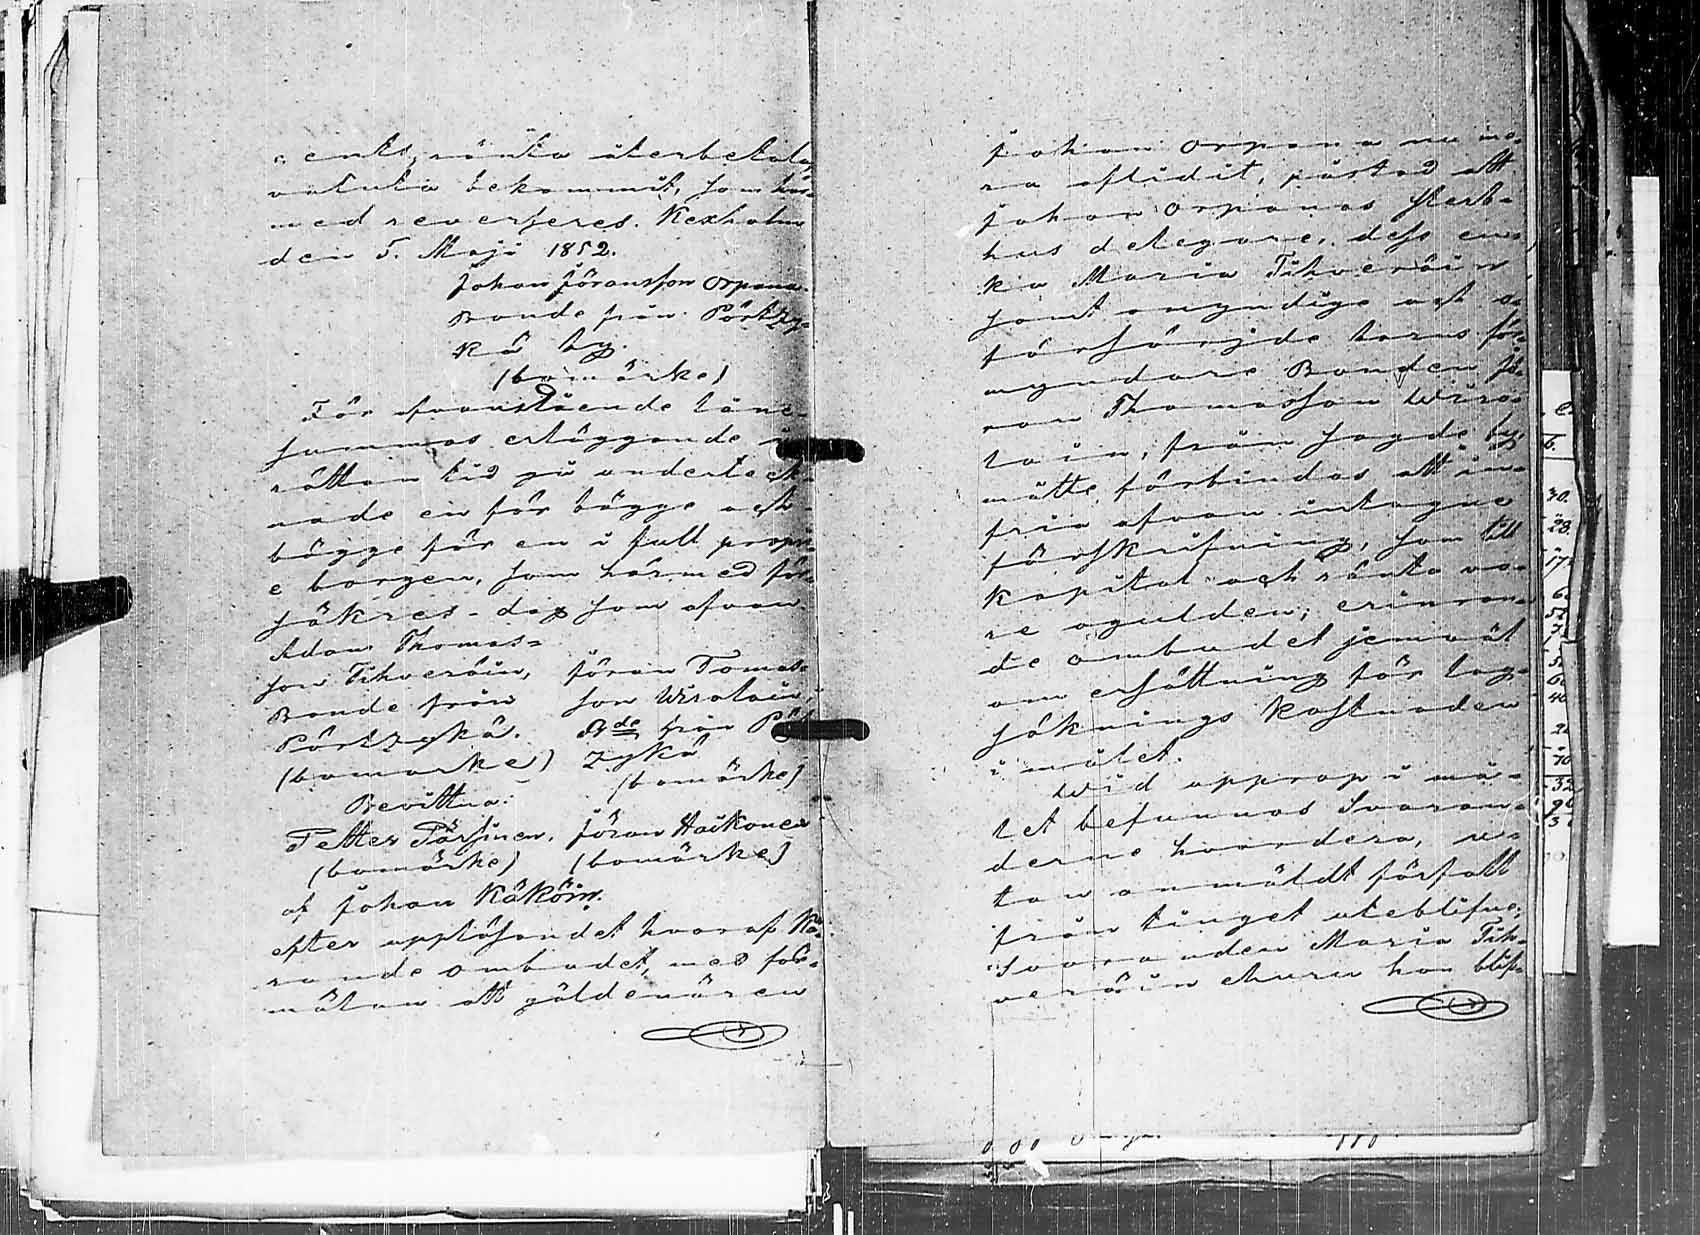 cents ränta återbetala,
valuta bekommit, som här-
med reverseres. Kexholm
den 5. Maji 1852.
Johan Jöransson Orpana
Bonde från Pörtzy-
kä by.
(bomärke)
För ofvanstående låne-
summas erläggande i
rättan tid gå underteck-
nade en för bägge och
bägge för en i full propri-
e borgen, som härmed för-
säkres - dag som ofvan.
Adam Thomas-
son Tihveräin, Jöran Tomas-
Bonde från son Wirolain
Pörtzykä. Bde från Pört-
(bomärke) zykä
(bomärke)
Bevittna:
Petter Pärssinen, Jöran Haikonen
(bomärke) (bomärke)
af Johan Käköin.
efter uppläsandet hvaraf Kä-
rande ombudet, med för-
mälan att gäldenären
Johan Orpana numo-
ra aflidit, påstod att
Johan Orpanas sterb-
hus delegare, dess en-
ka Maria Tihveräin
samt omyndige och o-
försörjde barns för-
myndare Bonden Jö-
ran Thomasson Wiro-
lain, från sagde by,
måtte förbindas att in-
fria ofvan intagne
förskrifning, som till
kapital och ränta vo-
re ogulden; erinran-
de ombudet jemväl
om ersättning för lag-
söknings kostnaden
i målet.
Wid upprop i må-
let befunnos Svaran-
derne hvardera, u-
tan anmäldt förfall
från tinget uteblifne;
Svaranden Maria Tih-
veräin ehuru hon blif-